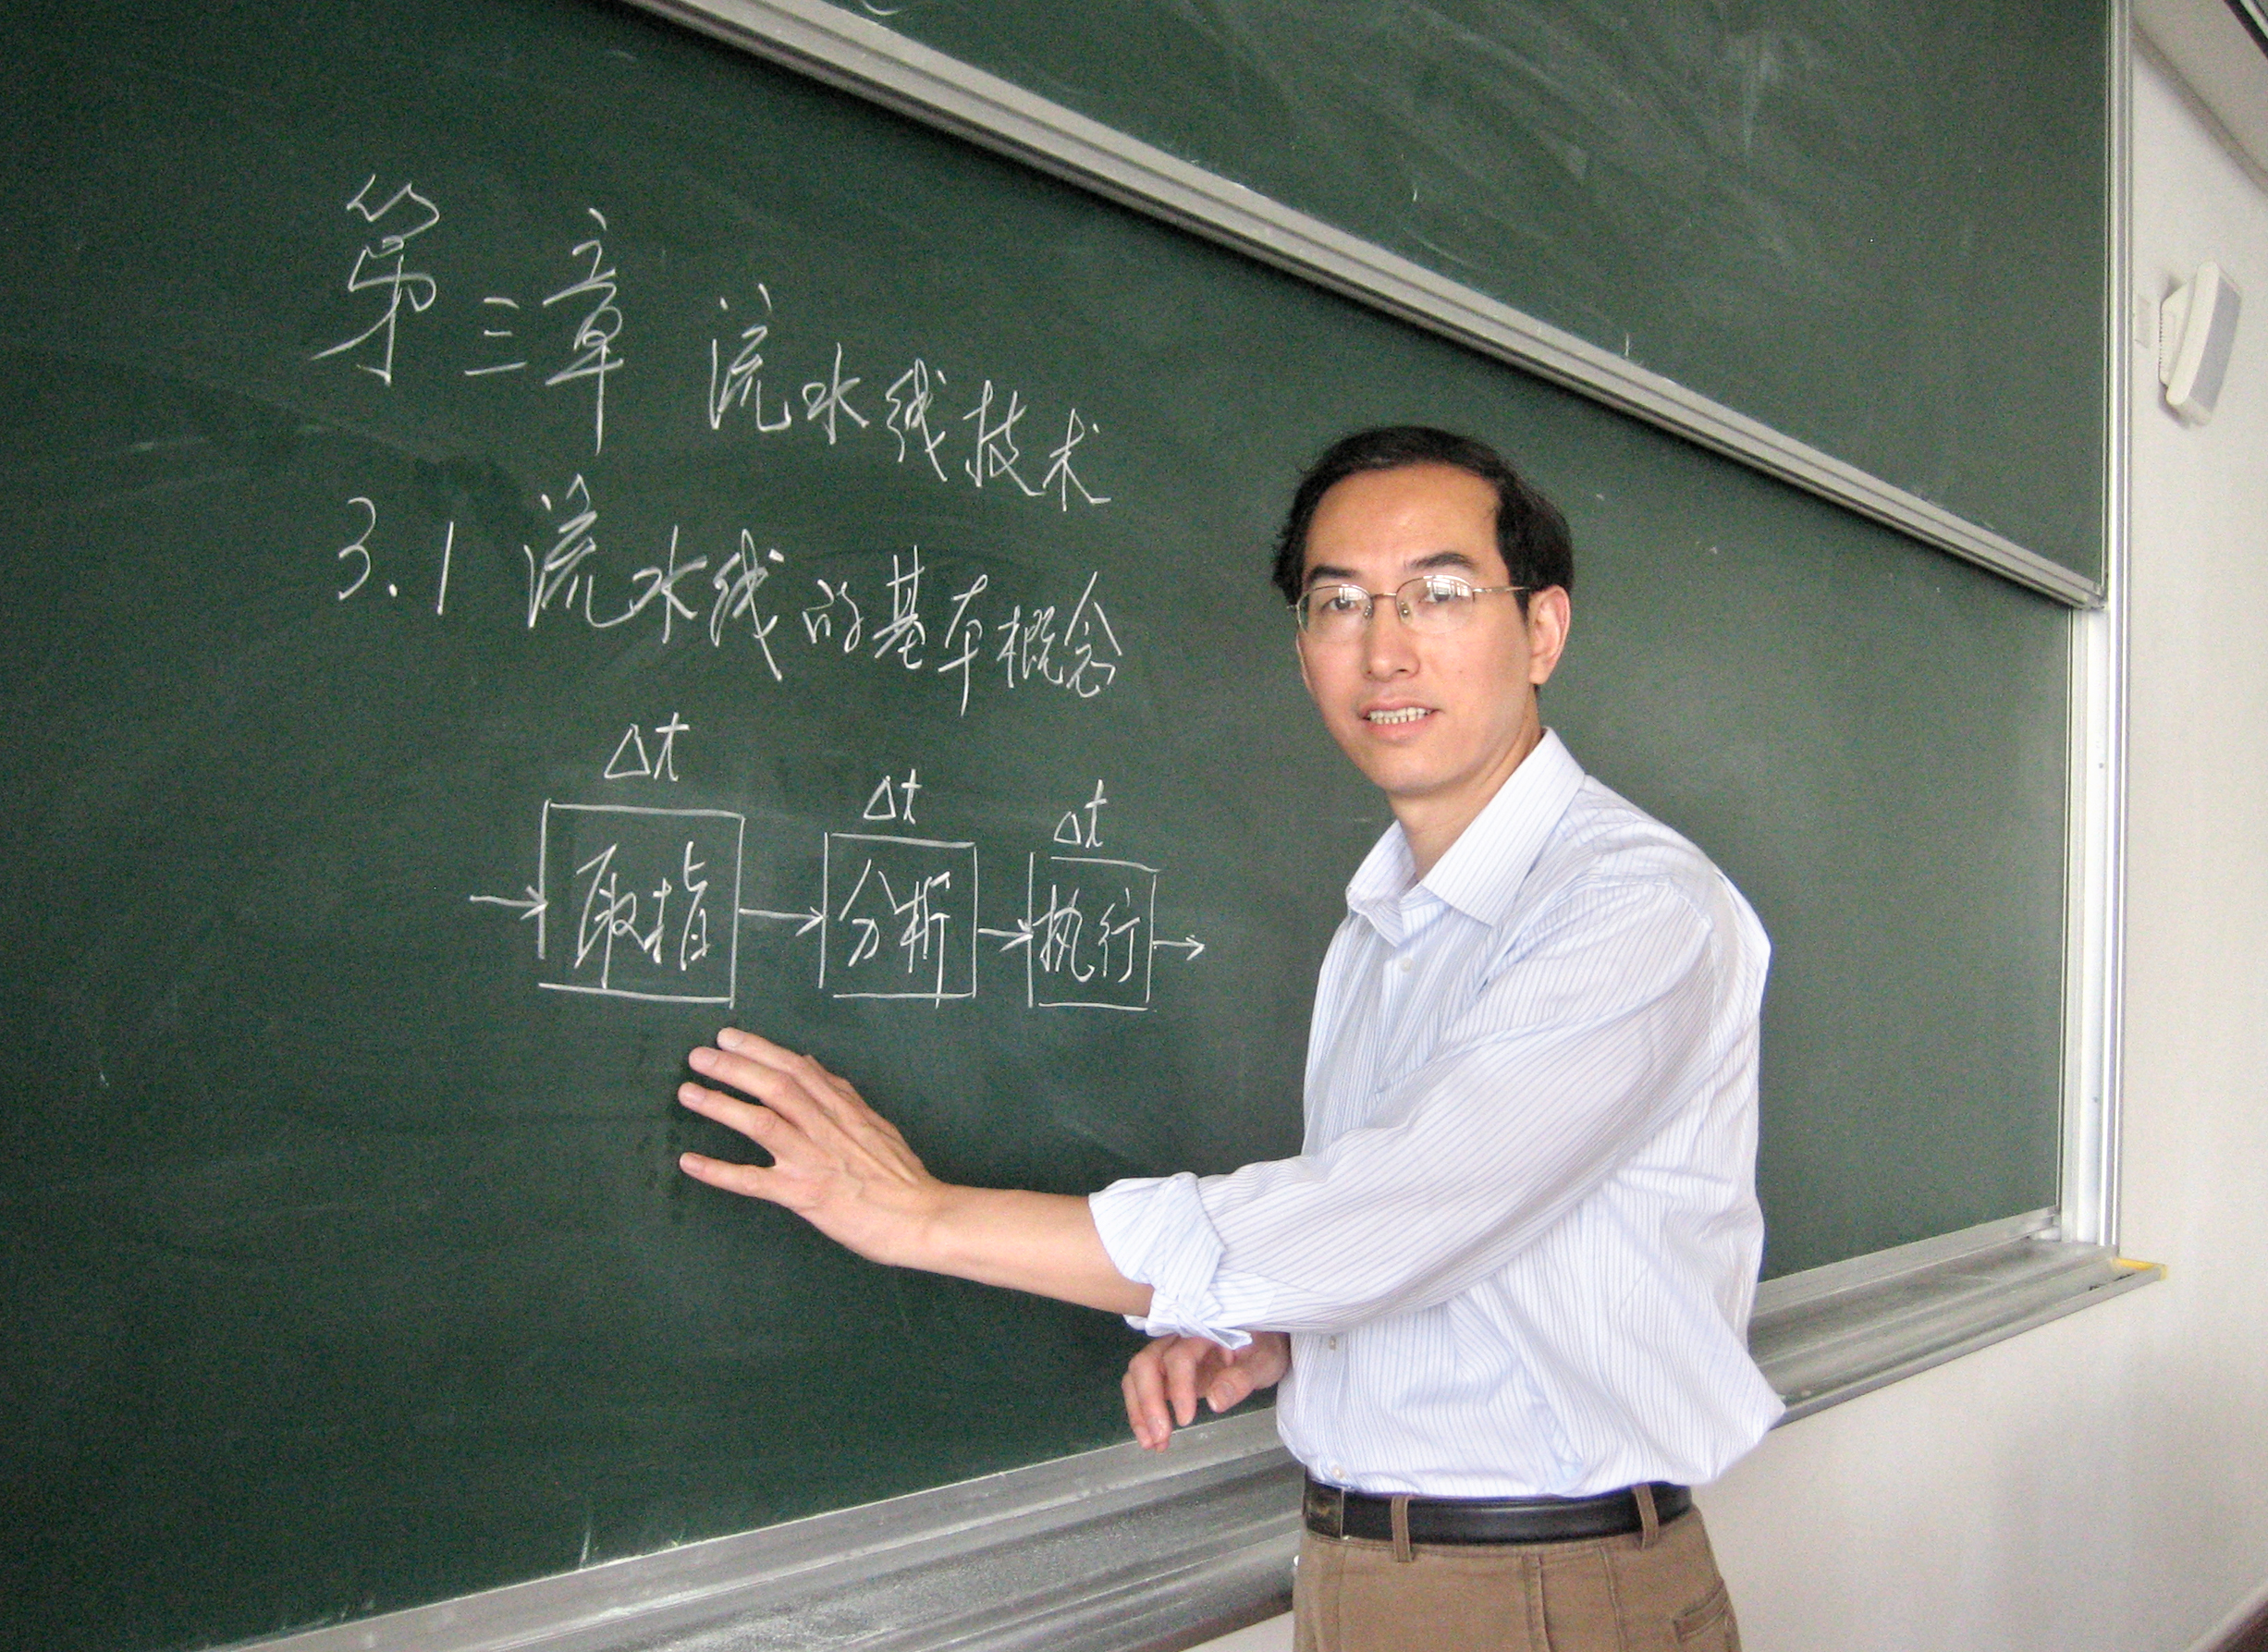 第三章 流水线技术
3.1 流水线的基本概念
Δt Δt Δt
取指 分析 执行